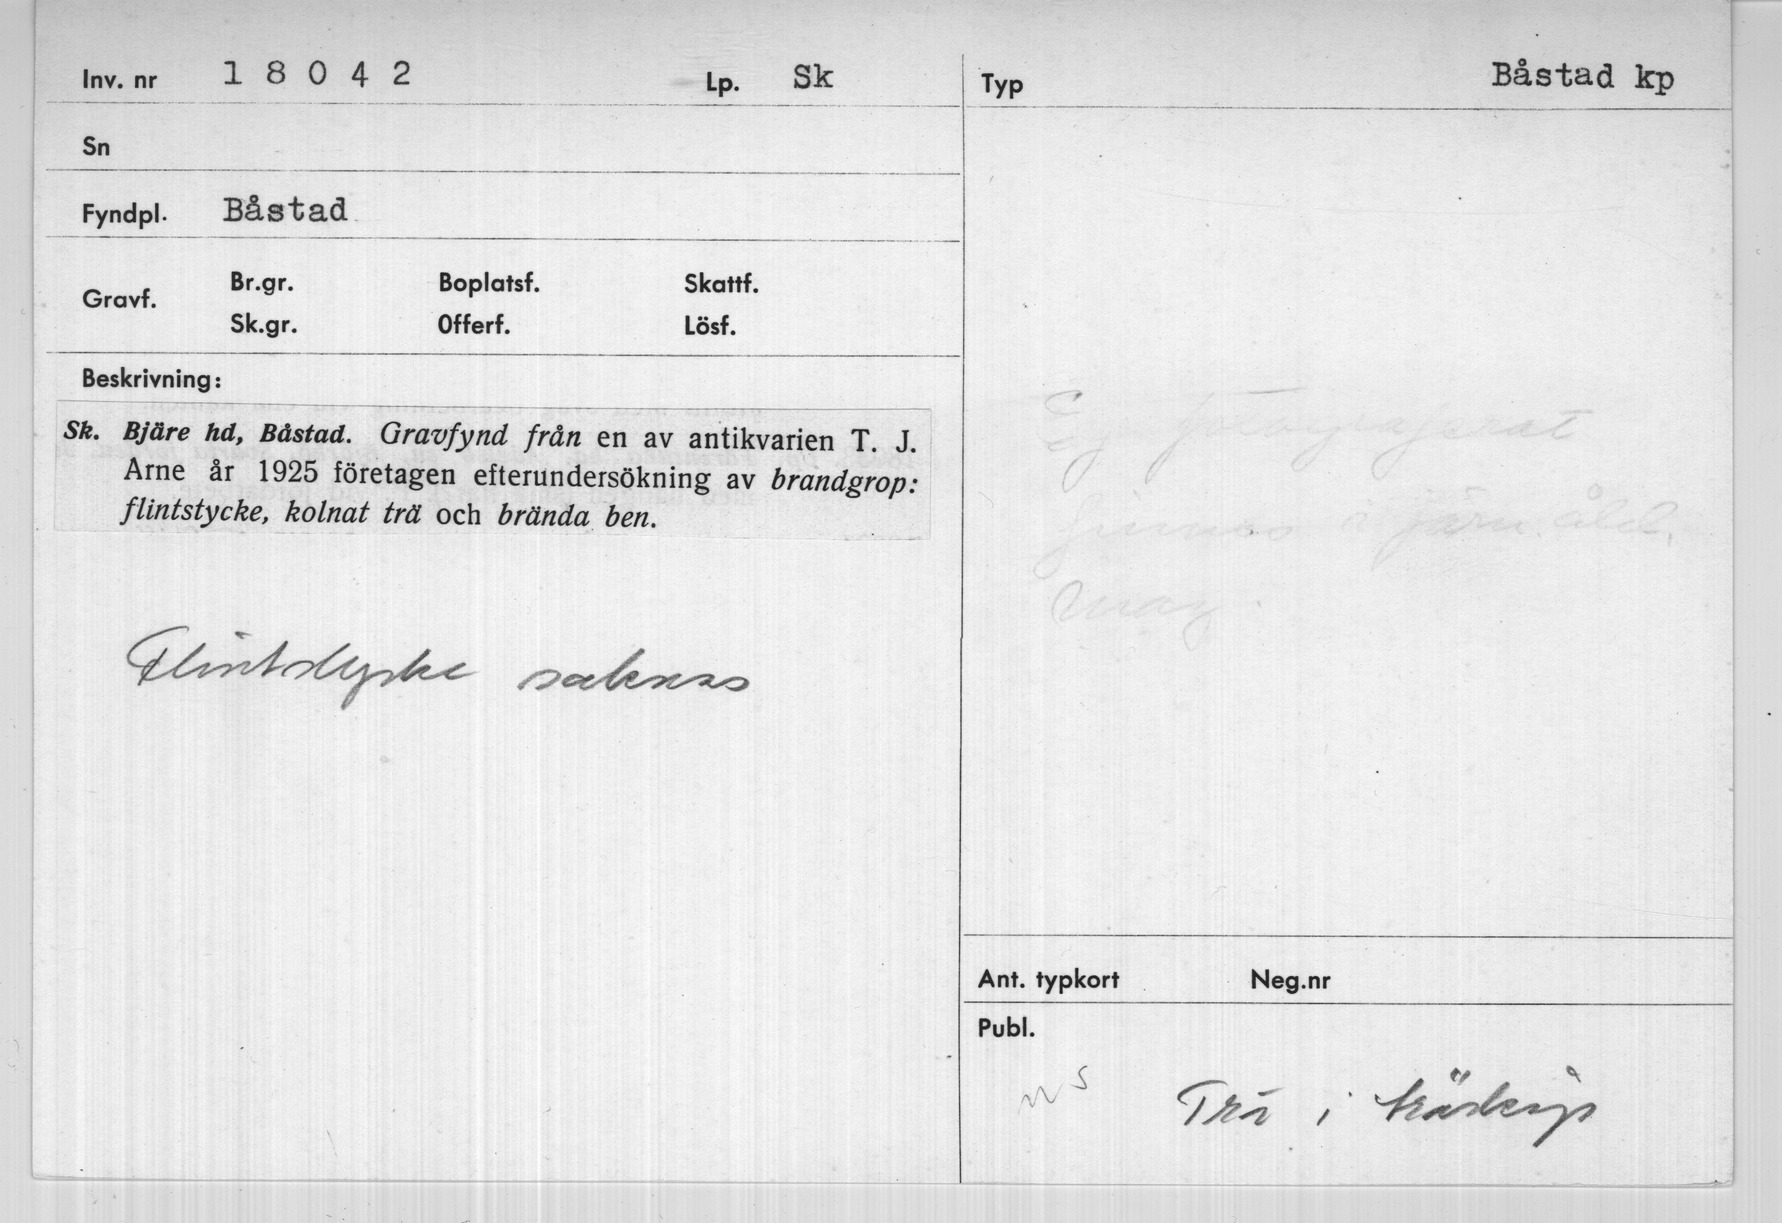 Inv. nr 18042 Lp. Sk
Sn
Fyndpl. Båstad
Gravf. Br.gr. Boplatsf. Skattf.
Sk.gr. Offerf. Lösf.
Beskrivning:
Sk. Bjäre hd, Båstad. Gravfynd från en av antikvarien T. J.
Arne år 1925 företagen efterundersökning av brandgrop:
flintstycke, kolnat trä och brända ben.
Flintstycke saknas
Typ Båstad kp
Ej fotograferat
finnes i järnåld.
mag.
Ant. typkort Neg.nr
Publ.
Trä i